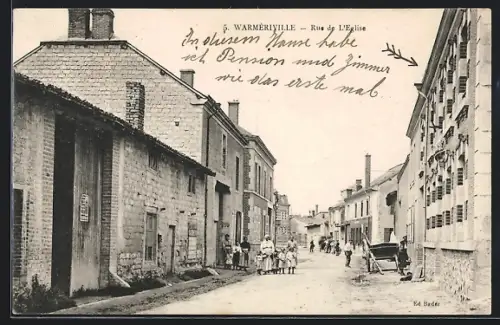 5. WARMÉRIVILLE — Rue de L'Eglise
In diesem Hause habe
ich Pension und Zimmer
wie das erste mal.
Ed Rudet